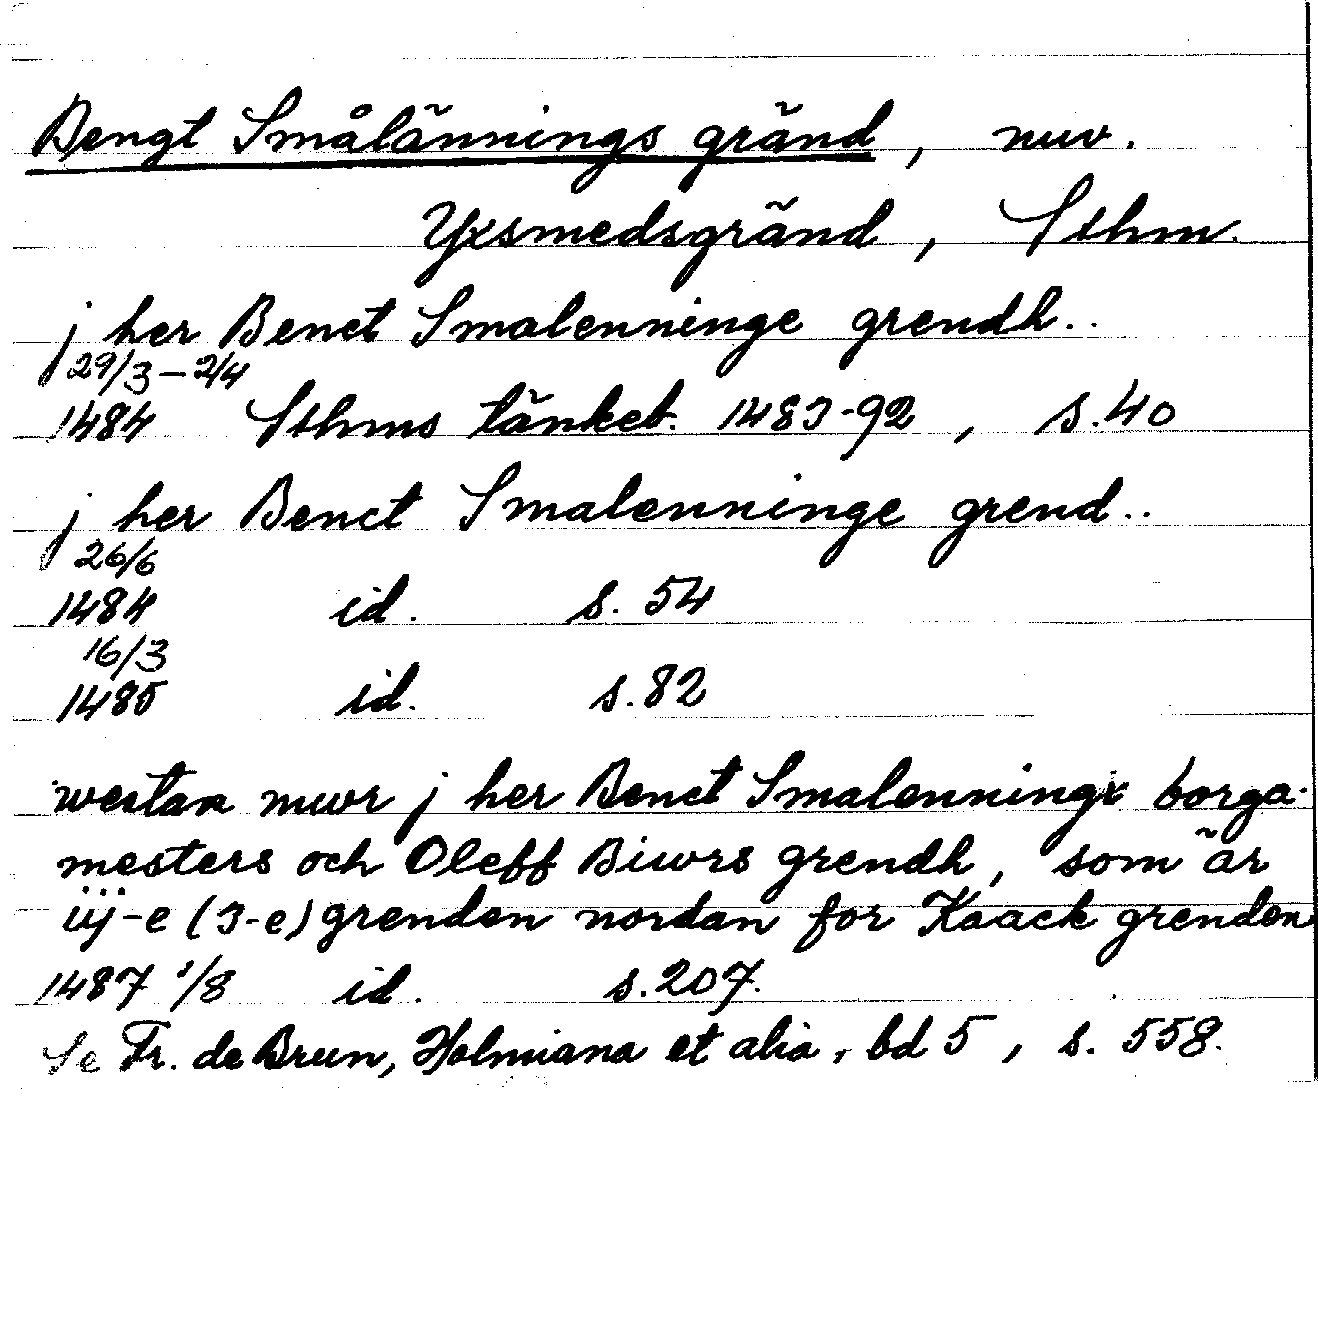 Bengt Smålännings gränd, nuv.
Yxsmedsgränd, Sthm.
j her Benct Smalenninge grendh..
29/3–2/4
1484 Sthms tänkeb. 1483-92, s.40
j her Benct Smalenninge grend..
26/6
1484 id. s. 54
16/3
1485 id. s.82
westan mwr j her Benct Smalennings borga-
mesters och Oleff Biwrs grendh, som är
iij-e (3-e) grenden nordan for Kaack grenden
1487 1/8 id. s.207.
Se Fr. de Brun, Holmiana et alia, bd 5, s. 558.